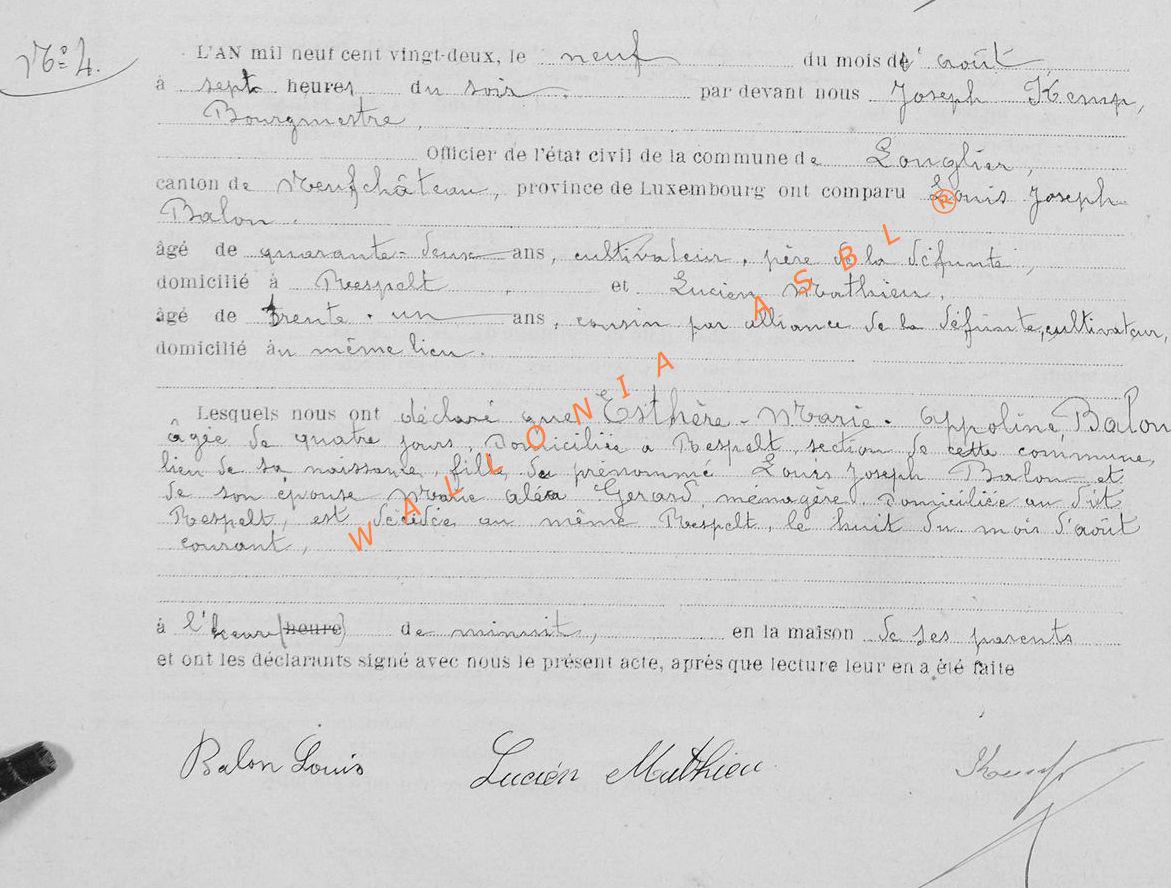 N° 4.
L'AN mil neuf cent vingt-deux, le neuf du mois de août
à sept heures du soir. par devant nous Joseph Kemp,
Bourgmestre,
Officier de l'état civil de la commune de Longlier,
canton de Neufchâteau, province de Luxembourg ont comparu Louis Joseph
Balon.
âgé de quarante-deux ans, cultivateur, père de la défunte,
domicilié à Respelt, et Lucien Mathieu,
âgé de trente-un ans, cousin par alliance de la défunte, cultivateur,
domicilié au même lieu.
Lesquels nous ont déclaré que Esthère-Marie-Appoline Balon
âgée de quatre jours, domiciliée à Respelt, section de cette commune,
lieu de sa naissance, fille du prénommé Louis Joseph Balon et
de son épouse Marie Gerard ménagère domiciliée au dit
Respelt, est décédée au même Respelt, le huit du mois d'août
courant,
à l'heure (heure) de minuit, en la maison de ses parents
et ont les déclarants signé avec nous le présent acte, après que lecture leur en a été faite
Balon Louis Lucien Mathieu Kemp
WALLONIA ASBL ®